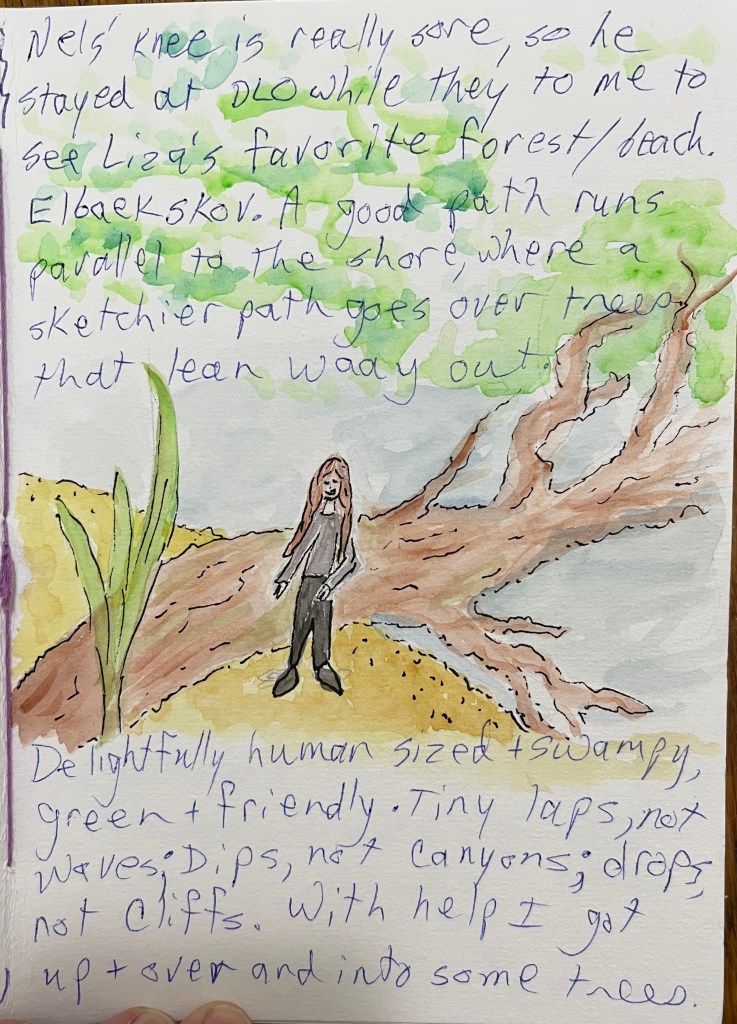 Nels' knee is really sore, so he
stayed at DLO while they to me to
see Liza's favorite forest/beach.
Elbaekskov. A good path runs
parallel to the shore, where a
sketchier path goes over trees
that lean waay out.
Delightfully human sized + swampy,
green + friendly. Tiny laps, not
waves; Dips, not canyons; drops,
not cliffs. With help I got
up + over and into some trees.